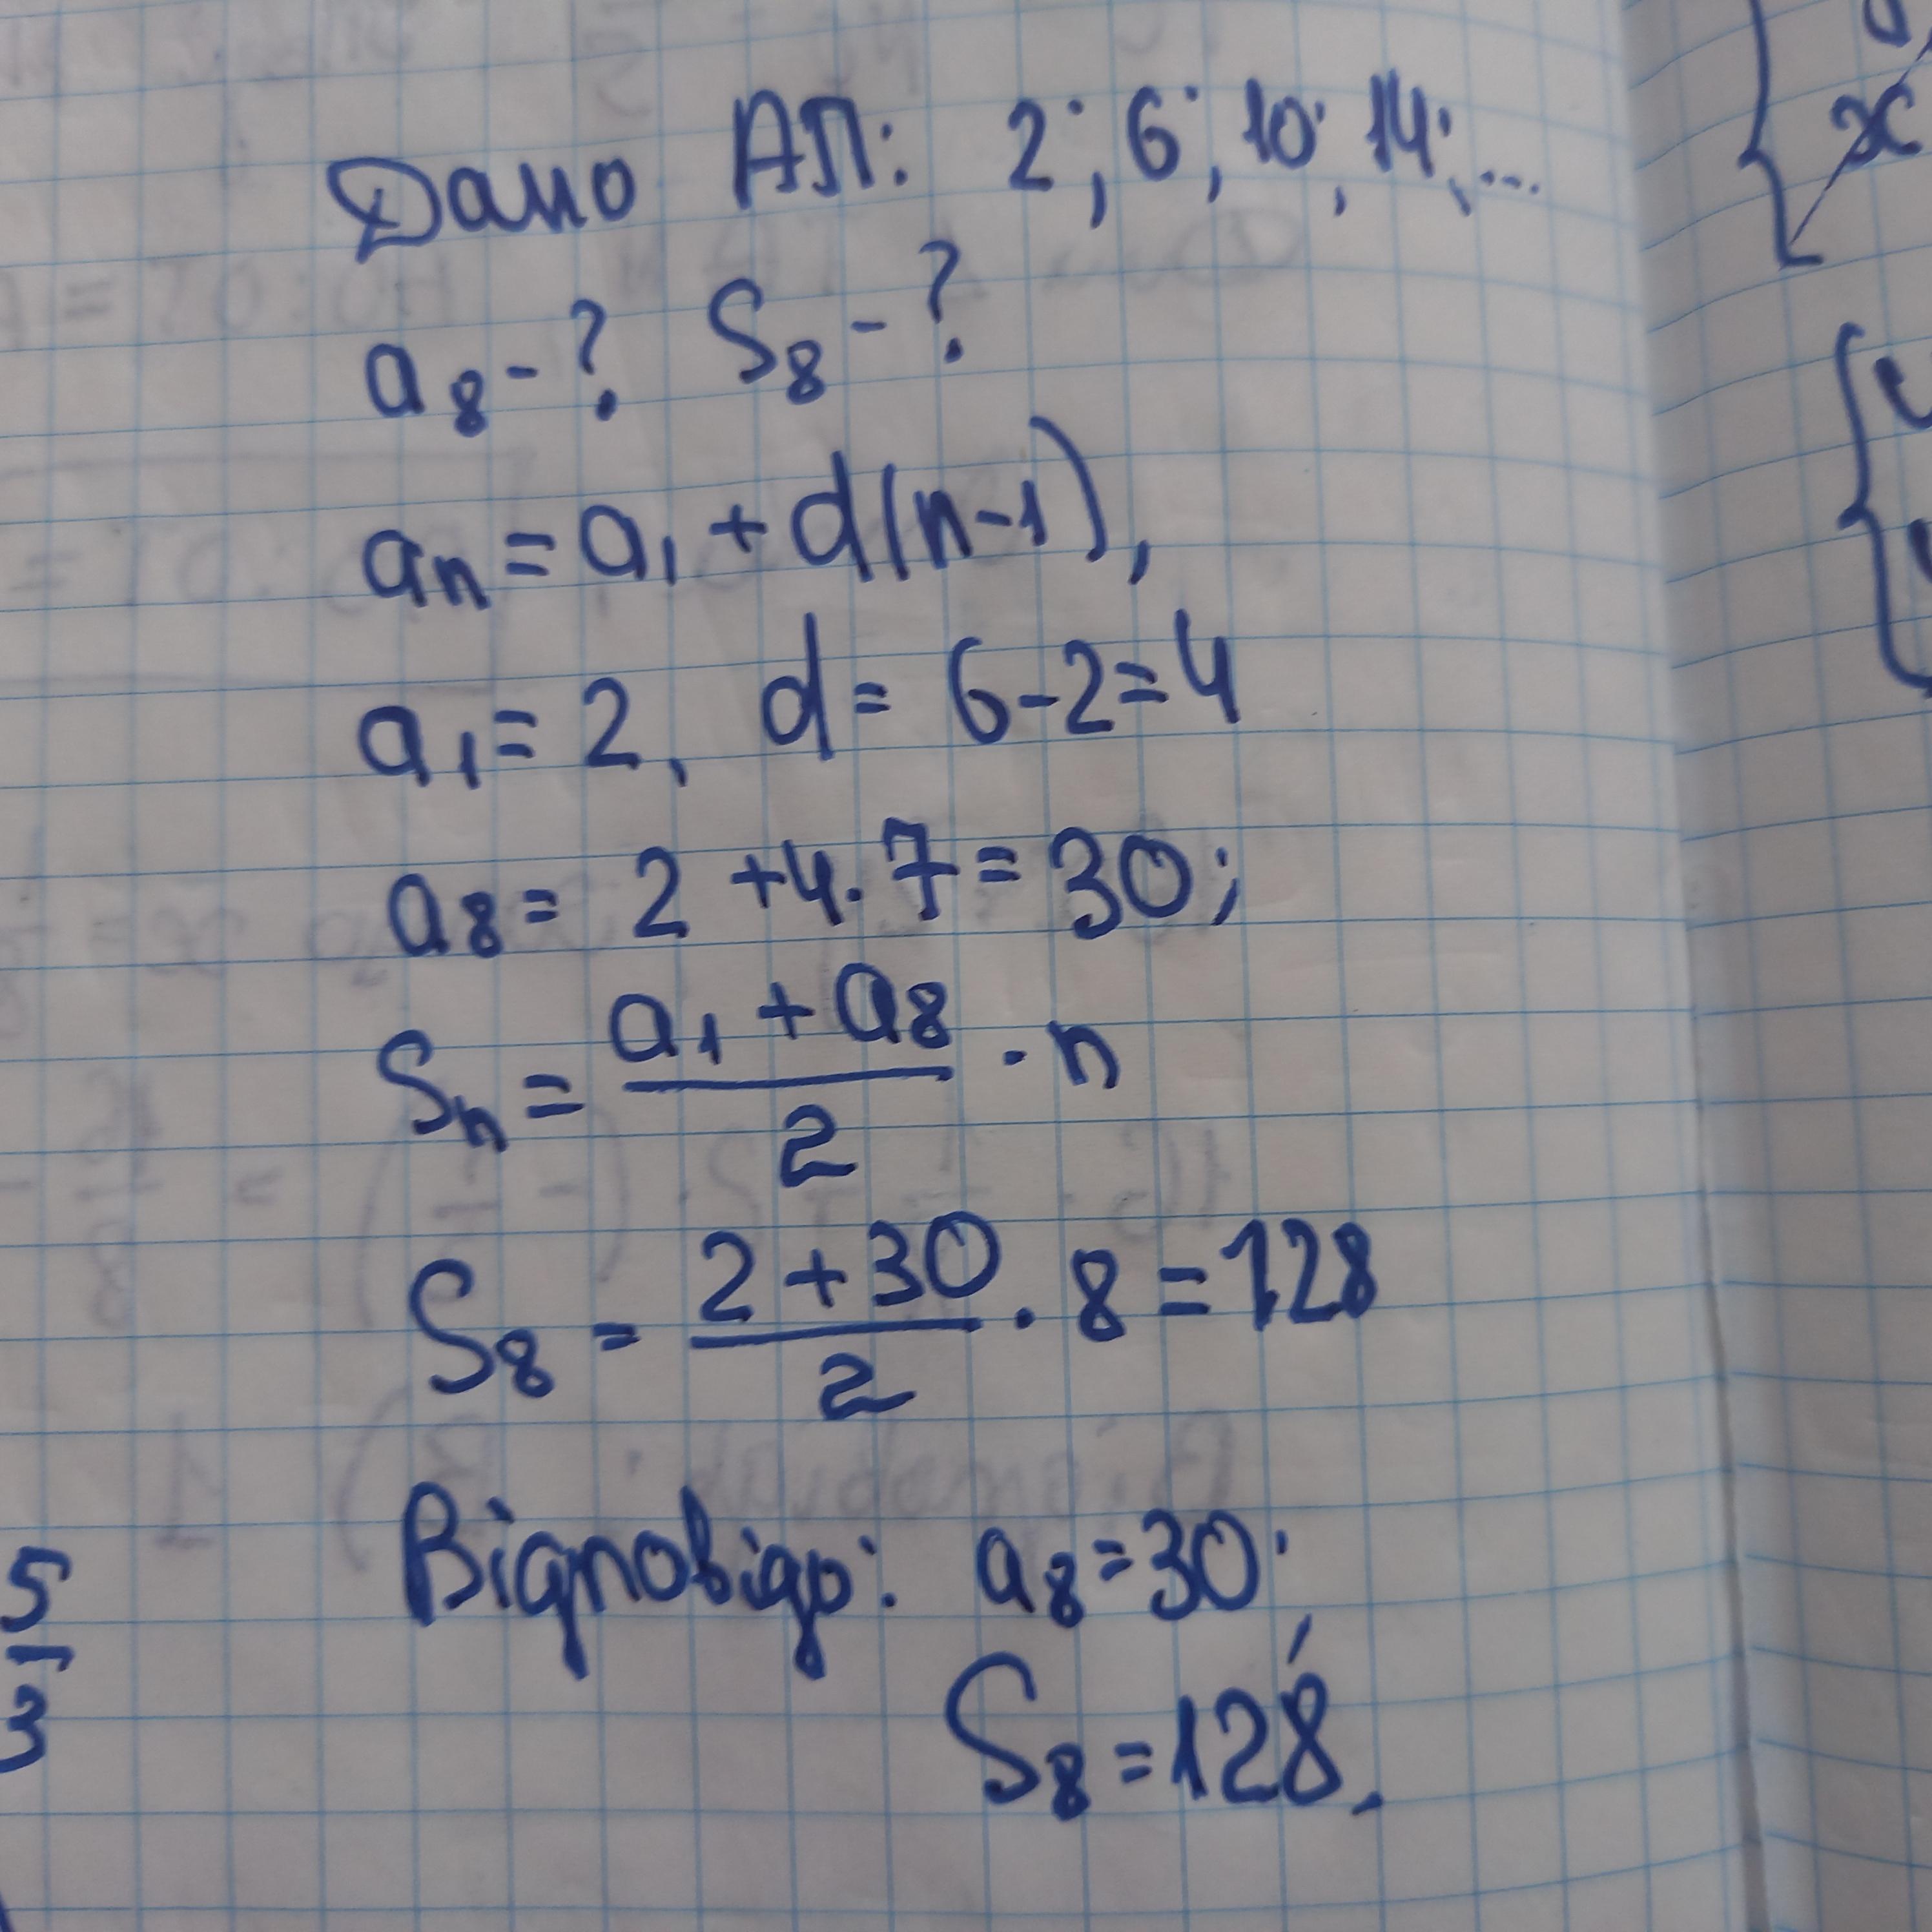 Дано АП: 2; 6; 10; 14; ...
a₈ - ? S₈ - ?
aₙ = a₁ + d(n-1),
a₁ = 2, d = 6-2=4
a₈ = 2 +4·7 = 30;
Sₙ = (a₁ + a₈)/2 · n
S₈ = (2+30)/2 · 8 = 128
Відповідь: a₈=30;
S₈=128.
5/3
x